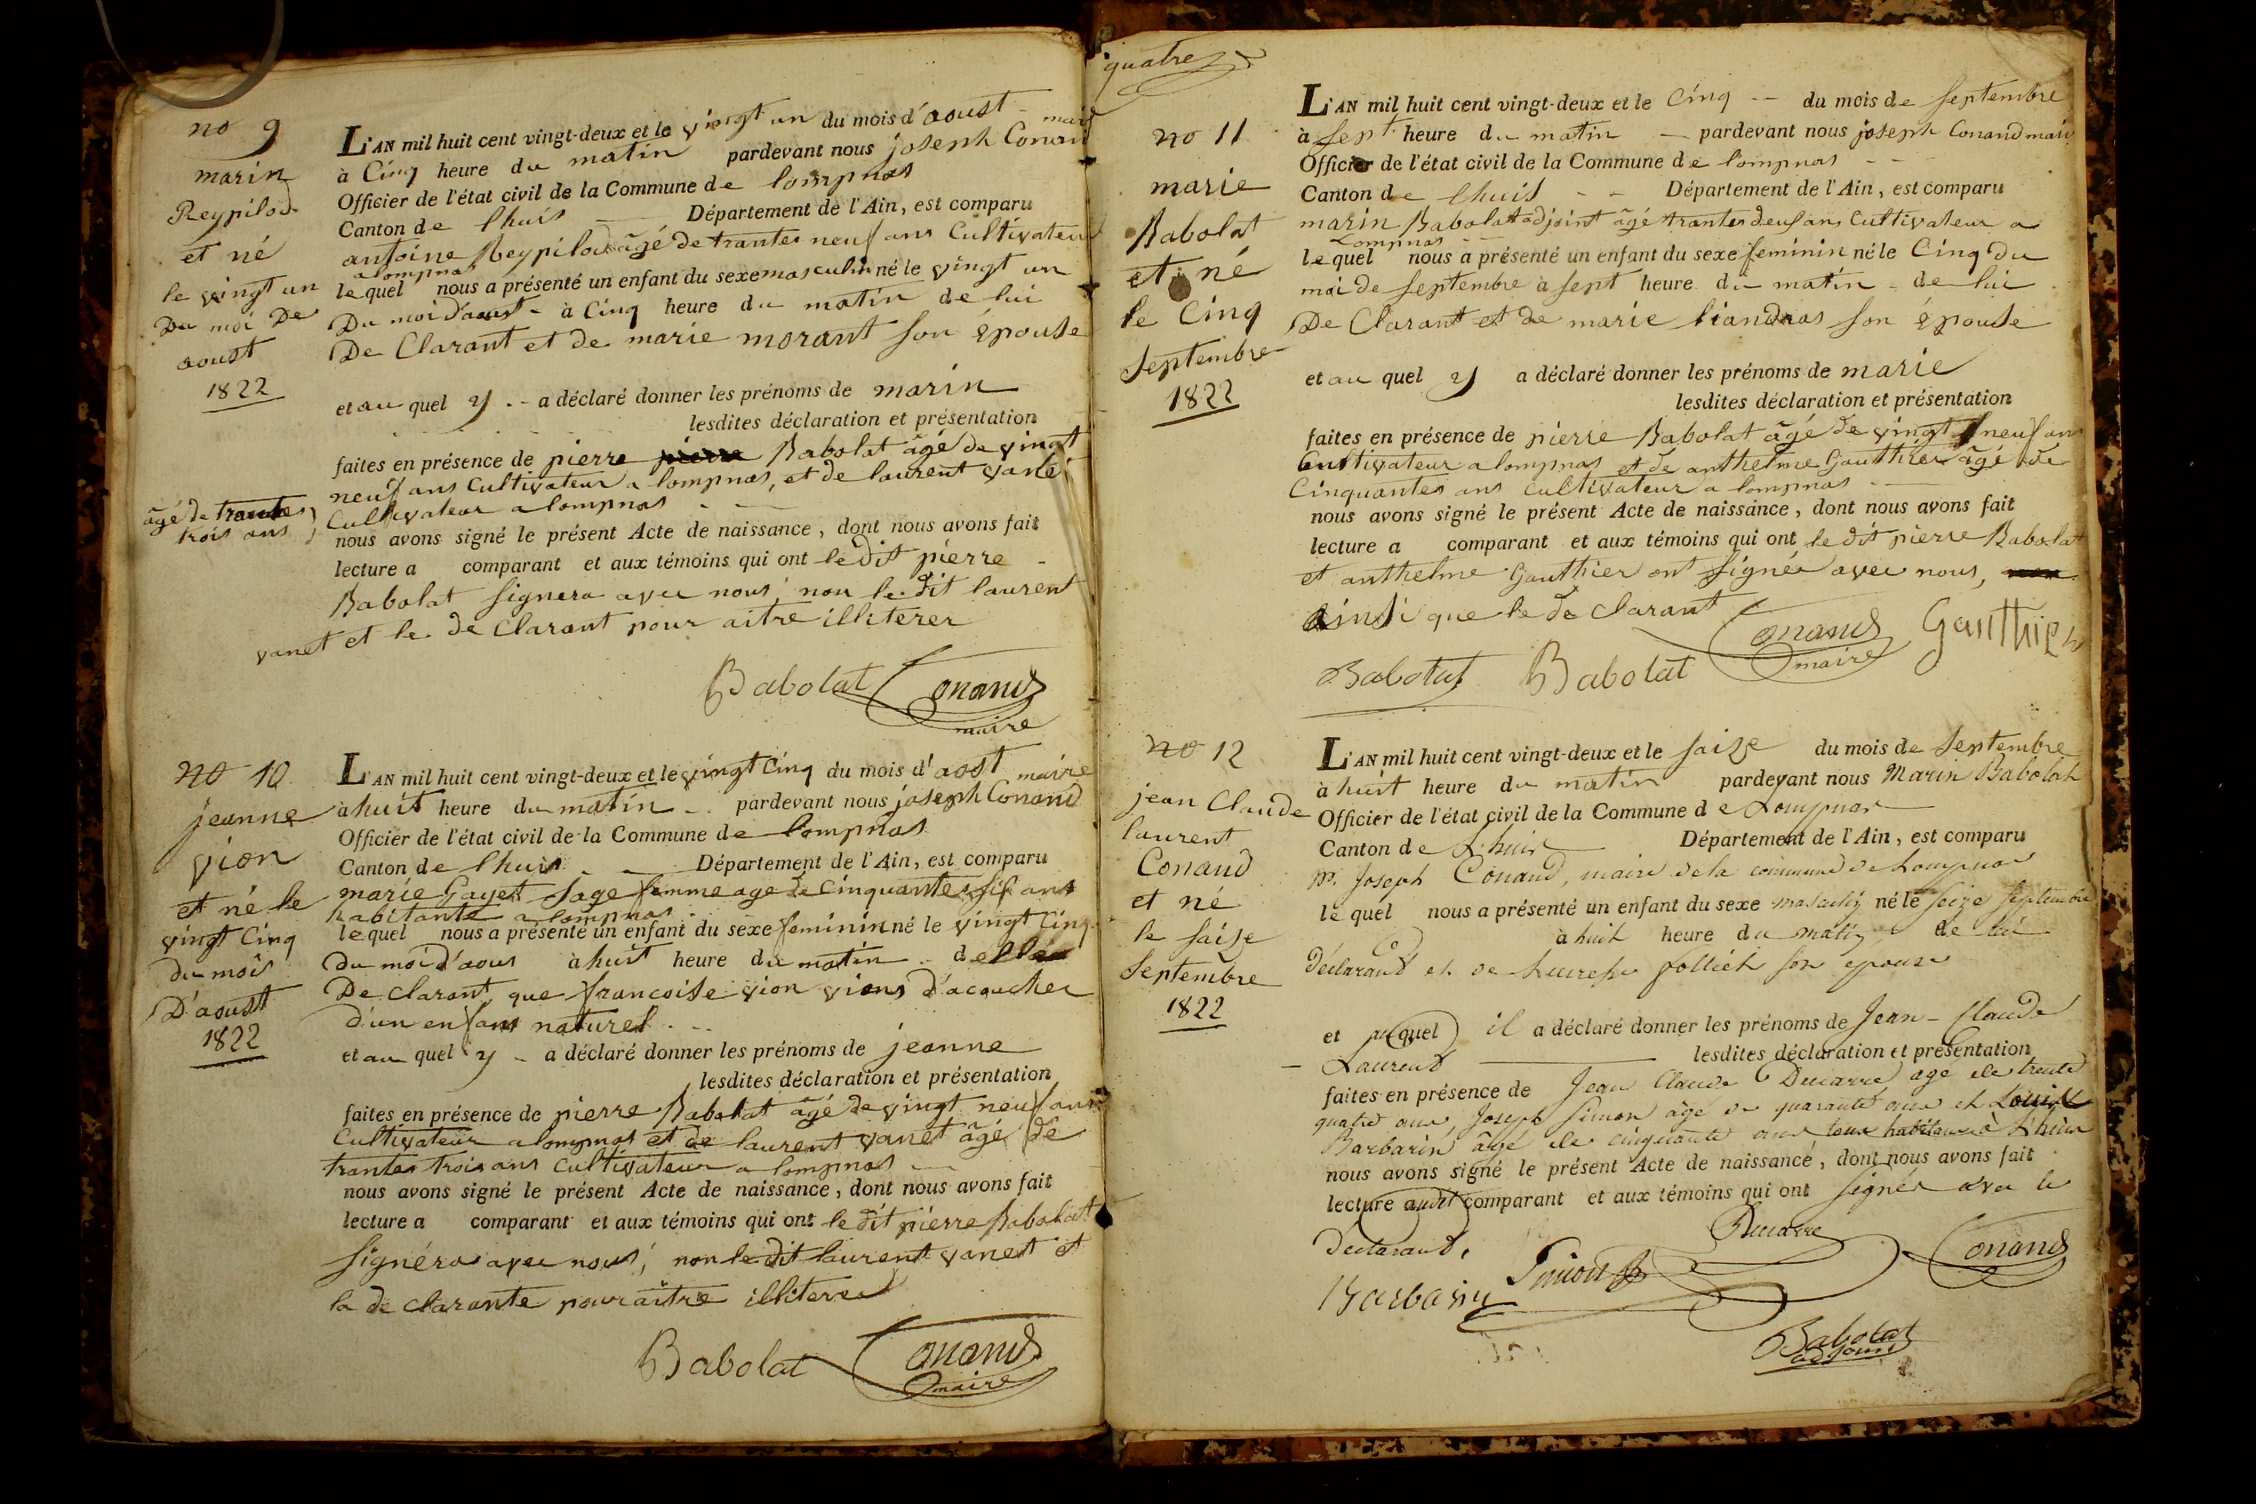 no 9
marin
Reypilod
et né
le vingt un
Du moi De
aoust
1822
L'AN mil huit cent vingt-deux et le vingt un du mois d'aoust
à Cinq heure du matin pardevant nous joseph Conand maire
Officier de l'état civil de la Commune de lompnas
Canton de lhuis Département de l'Ain, est comparu
antoine Reypilod âgé de trantes neuf ans Cultivateur
a lompnas
lequel nous a présenté un enfant du sexe masculin né le vingt un
Du moi d'aoust - à Cinq heure du matin de lui
De Clarant et de marie morant son épouse
et au quel y a déclaré donner les prénoms de marin
lesdites déclaration et présentation
faites en présence de pierre pierre Babolat âgé de vingt
neuf ans Cultivateur a lompnas, et de laurent vanet
âgé de trantes trois ans
Cultivateur a lompnas
nous avons signé le présent Acte de naissance, dont nous avons fait
lecture a comparant et aux témoins qui ont le dit pierre
Babolat signera avec nous, non le dit laurent
vanet et le de Clarant pour aitre illiterer
Babolat Conand
maire
no 10
jeanne
vion
et né le
vingt Cinq
du mois
D'aoust
1822
L'AN mil huit cent vingt-deux et le vingt Cinq du mois d'aost
à huit heure du matin pardevant nous joseph Conand maire
Officier de l'état civil de la Commune de lompnas
Canton de lhuis Département de l'Ain, est comparu
marie Gayet sage femme age de Cinquantes six ans
habitante a lompnas
lequel nous a présenté un enfant du sexe feminin né le vingt Cinq
du moi d'aous à huit heure du matin
De clarant que francoise vion viens d'acoucher
d'un enfant naturel
et au quel y a déclaré donner les prénoms de jeanne
lesdites déclaration et présentation
faites en présence de pierre Babolat âgé de vingt neuf ans
Cultivateur a lompnas et de laurent vanet âgé de
trantes trois ans Cultivateur a lompnas
nous avons signé le présent Acte de naissance, dont nous avons fait
lecture a comparant et aux témoins qui ont le dit pierre Babolat
signéra avec nous, non le dit laurent vanet et
la de clarante pour aitre illiterer
Babolat Conand
maire
quatre
no 11
marie
Babolat
et né
le Cinq
Septembre
1822
L'AN mil huit cent vingt-deux et le Cinq du mois de Septembre
à sept heure du matin pardevant nous joseph Conand maire
Officier de l'état civil de la Commune de lompnas
Canton de lhuis Département de l'Ain, est comparu
marin Babolat adjoint âgé trantes deus ans Cultivateur a
Lompnas
lequel nous a présenté un enfant du sexe feminin né le Cinq du
moi de Septembre à sept heure du matin de lui
De Clarant et de marie liandras son épouse
et au quel y a déclaré donner les prénoms de marie
lesdites déclaration et présentation
faites en présence de pierre Babolat âgé de vingt neuf ans
Cultivateur a lompnas et de anthelme Gauthier âgé de
Cinquantes ans Cultivateur a lompnas
nous avons signé le présent Acte de naissance, dont nous avons fait
lecture a comparant et aux témoins qui ont le dit pierre Babolat
et anthelme Gauthier ont signée avec nous,
ainsi que le dé clarant
Conand Gauthier
maire
Babolat Babolat
no 12
jean Claude
laurent
Conand
et né
le saize
Septembre
1822
L'AN mil huit cent vingt-deux et le saize du mois de Septembre
à huit heure du matin pardevant nous Marin Babolat
Officier de l'état civil de la Commune de Lompnas
Canton de Lhuis Département de l'Ain, est comparu
mr. Joseph Conand, maire de la commune de Lompnas
lequel nous a présenté un enfant du sexe masculin né le seize septembre
à huit heure du matin, de lui
déclarand et de son epouse
et auquel il a déclaré donner les prénoms de Jean-Claude
Laurend lesdites déclaration et présentation
faites en présence de Jean Claude Ducarre agé de trente
quatre ans, Joseph Simon âgé de quarante ans et Louis
Barbarin âgé de cinquante ans tous habitans à Lhuis
nous avons signé le présent Acte de naissance, dont nous avons fait
lecture audit comparant et aux témoins qui ont signés avec le
declarand.
Ducarre
Conand
Barbarin Simon
Babolat
adjoint